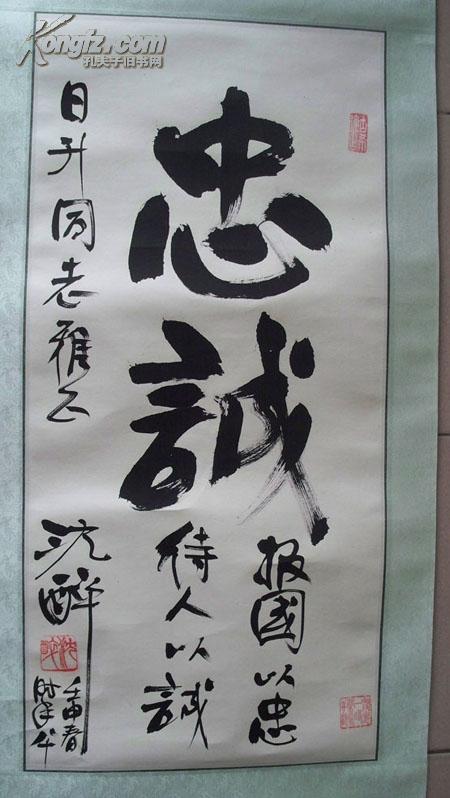 Kongfz.com
孔夫子旧书网
忠誠
报國以忠
待人以誠
日升同志雅正
沈醉
壬申春